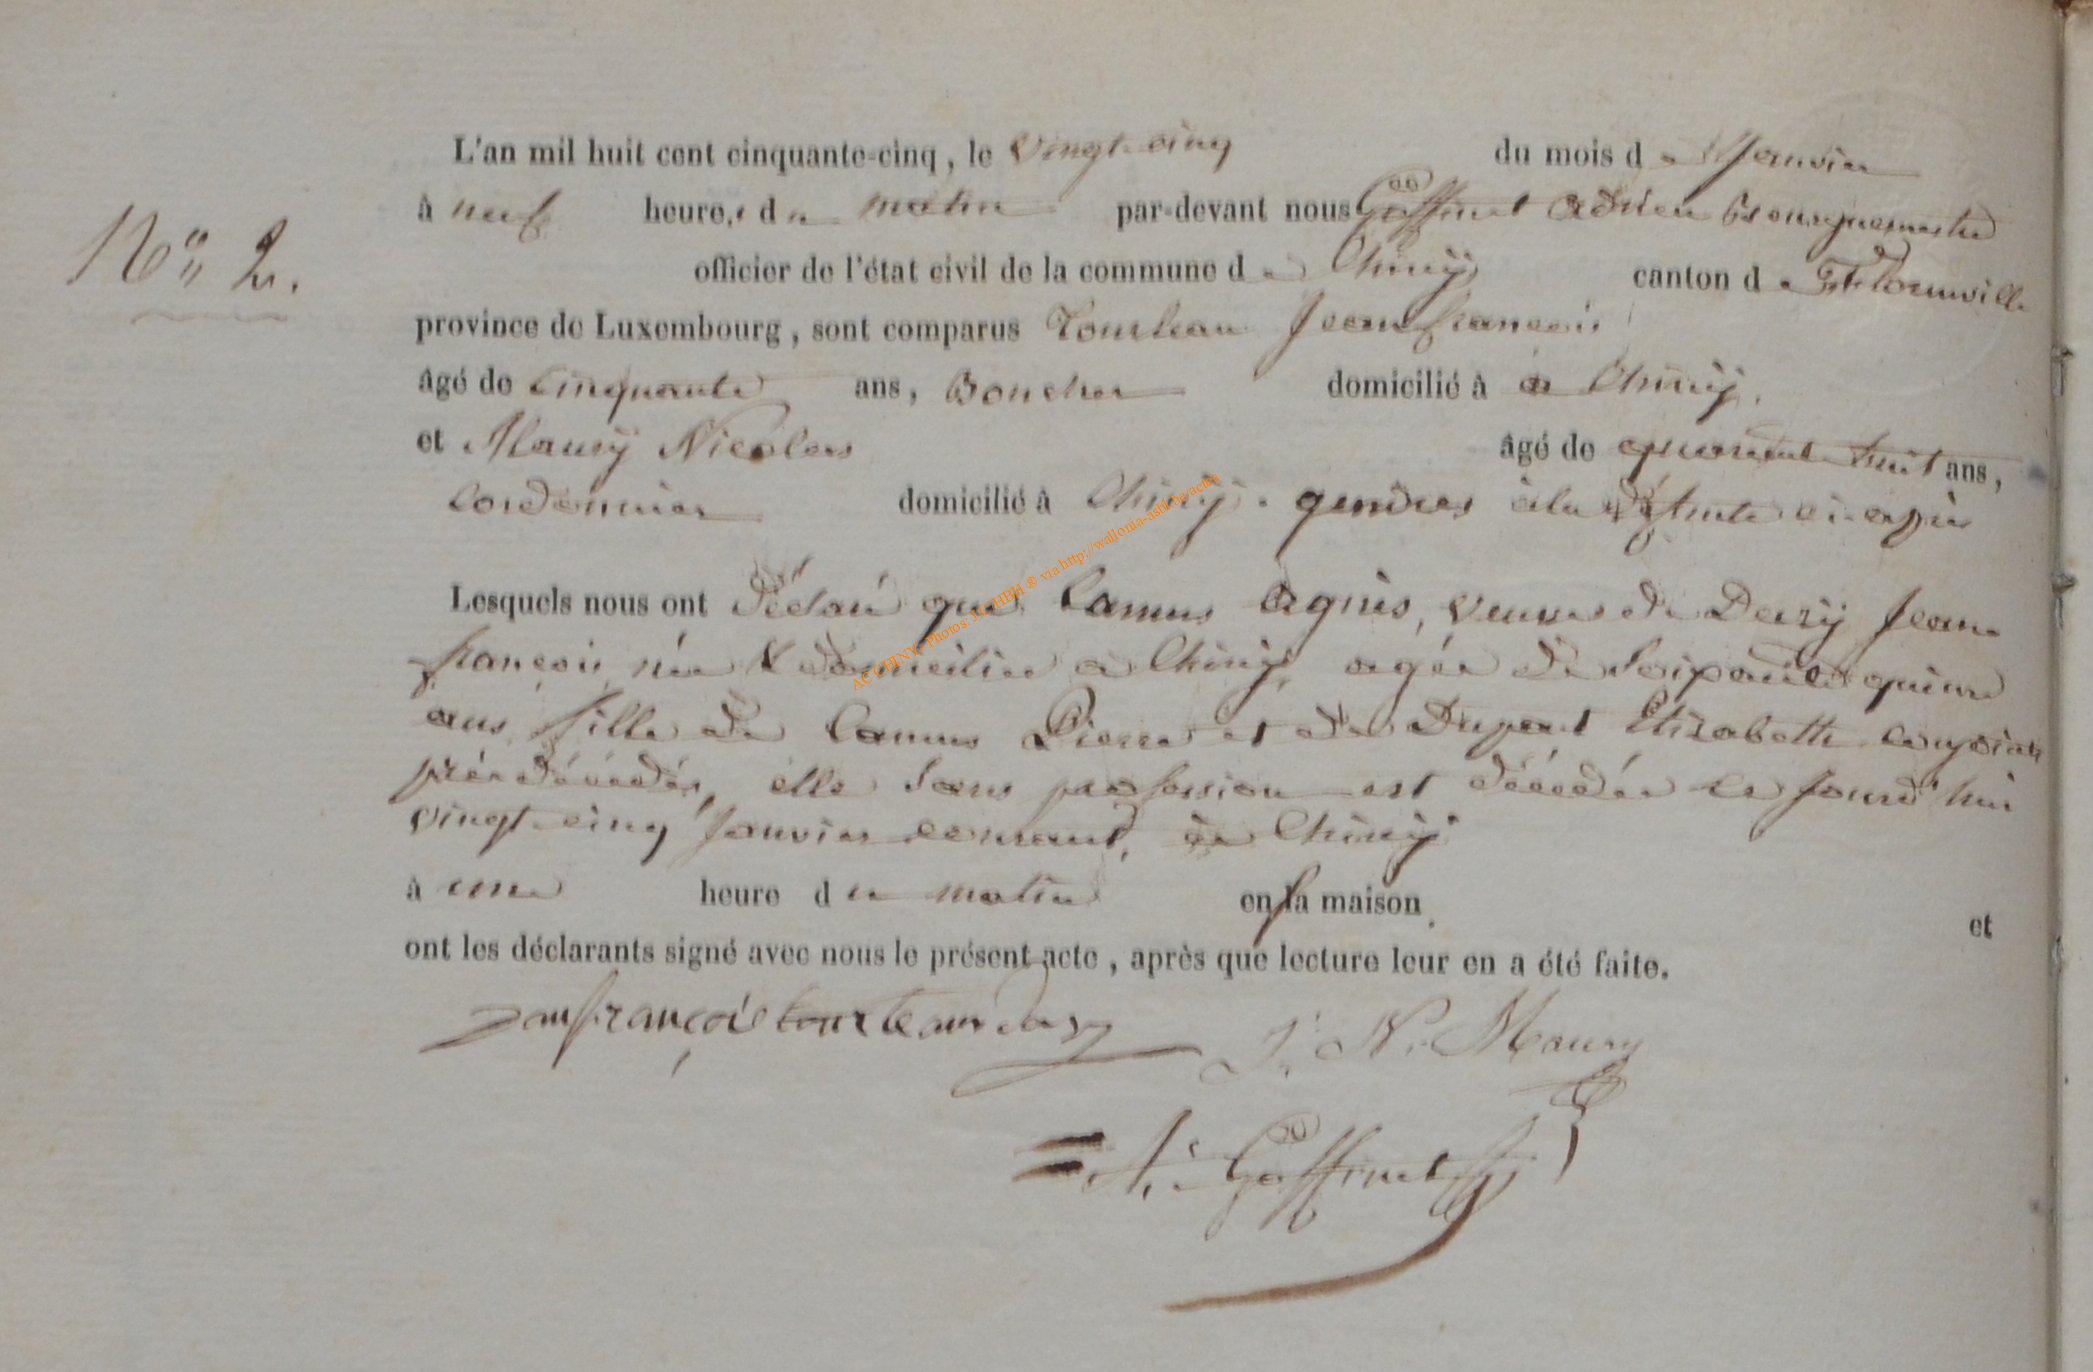 L'an mil huit cent cinquante-cinq, le vingt-cinq du mois de Janvier
à neuf heure, s du matin par-devant nous Goffinet adrien Bourguemestre
N° 2.
officier de l'état civil de la commune de Chiny canton de Florenville
province de Luxembourg, sont comparus Tourteau Jean françois
âgé de cinquante ans, Boucher domicilié à a Chiny,
et Maury Nicolas âgé de quarante huit ans,
Cordonnier domicilié à Chiny. gendres à la défunte ci-après
Lesquels nous ont déclaré que Camus Agnès, veuve de Davy Jean
françois, née & domiciliée a Chiny, agée de Soixante quinze
ans, fille de Camus Pierre et de Dupont Elisabeth conjoints
prédécédés, elle Sans profession est décédée ce jourd'hui
vingt-cinq Janvier courant, à Chiny
à une heure du matin en sa maison et
ont les déclarants signé avec nous le présent acte, après que lecture leur en a été faite.
Janfrançois tourteau davy J. N. Maury
A. Goffinet
AC CHINY Photos: J.C.HBH ® via http://wallonia-asbl.be/actes